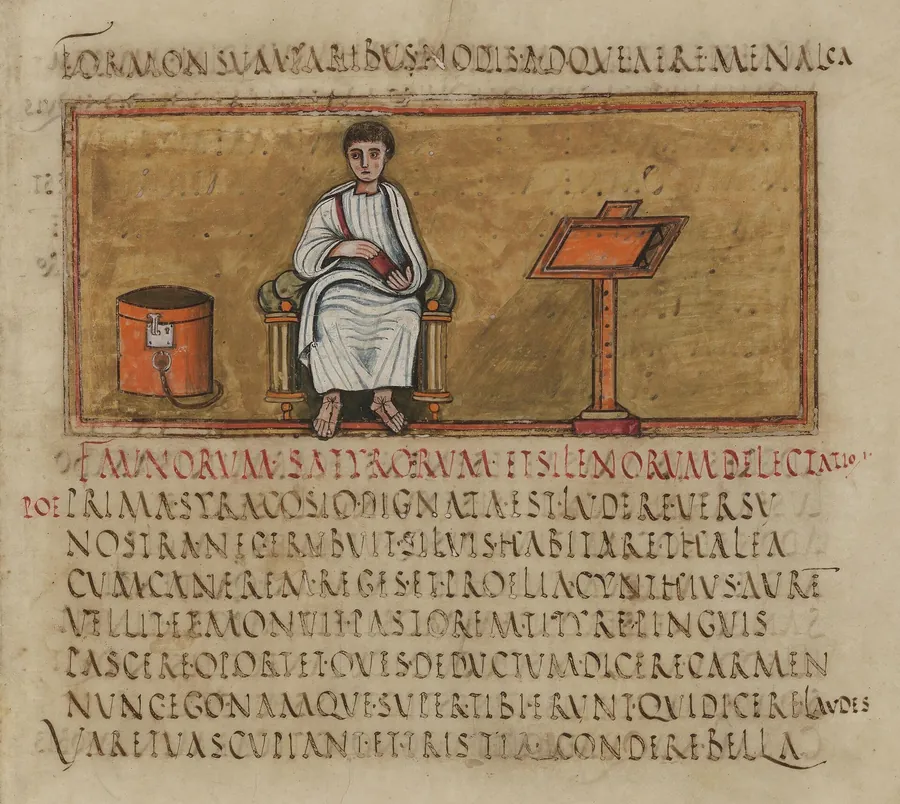 FORMONSUM·PARIBUS·NODIS·ADQVE·AERE·MENALCA
FAUNORVM·SATYRORVM·ET SILENORVM·DELECTATIO
POE PRIMA·SYRACOSIO·DIGNATA·EST·LVDERE·VERSV
NOSTRA·NEC·ERVBVIT·SILVIS·HABITARE·THALEA
CVM·CANEREM·REGES·ET·PROELIA·CYNTHIVS·AVRE
VELLIT·ET·MONVIT·PASTOREM·TITYRE·PINGVIS
PASCERE·OPORTET·OVES·DEDVCTVM·DICERE·CARMEN
NVNC·EGO·NAMQVE·SVPER·TIBI·ERVNT·QVI·DICERE·LAVDES
VARE·TVAS·CVPIANT·ET·TRISTIA·CONDERE·BELLA